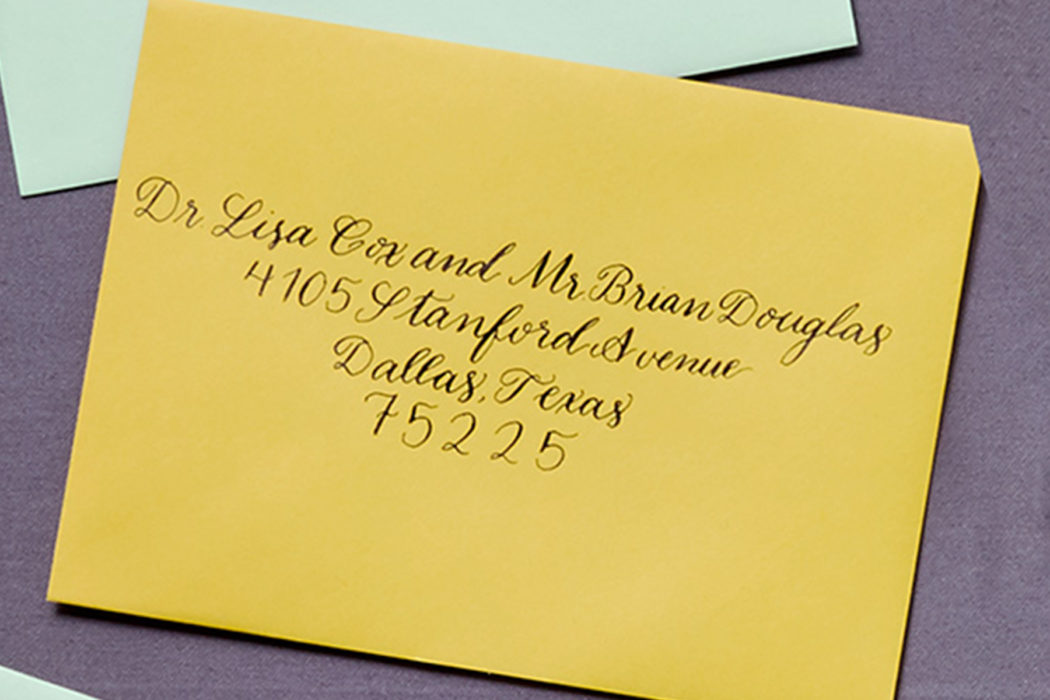 Dr. Lisa Cox and Mr. Brian Douglas
4105 Stanford Avenue
Dallas, Texas
75225